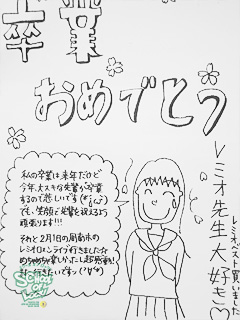 卒業
おめでとう
私の卒業は来年だけど
今年、大スキな先輩が卒業
するので悲しいです
でも、笑顔で先輩を送えるよう
頑張ります!!!
それと2月1日の周南市の
レミオロメンライブ行きました☆
めちゃめちゃ楽しかったし超感動!
また行きたいですっ(>∀<*)
レミオ先生大好き♡
レミオベスト買いました
SCHOOL OF LOCK!